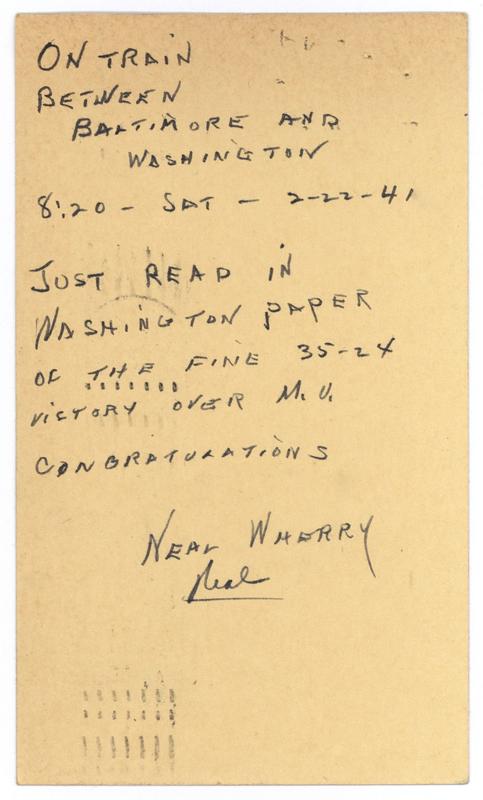 ON TRAIN
BETWEEN
BALTIMORE AND
WASHINGTON
8:20 - SAT - 2-22-41
JUST READ IN
WASHINGTON PAPER
OF THE FINE 35-24
VICTORY OVER M.U.
CONGRATULATIONS
NEAL WHERRY
Neal